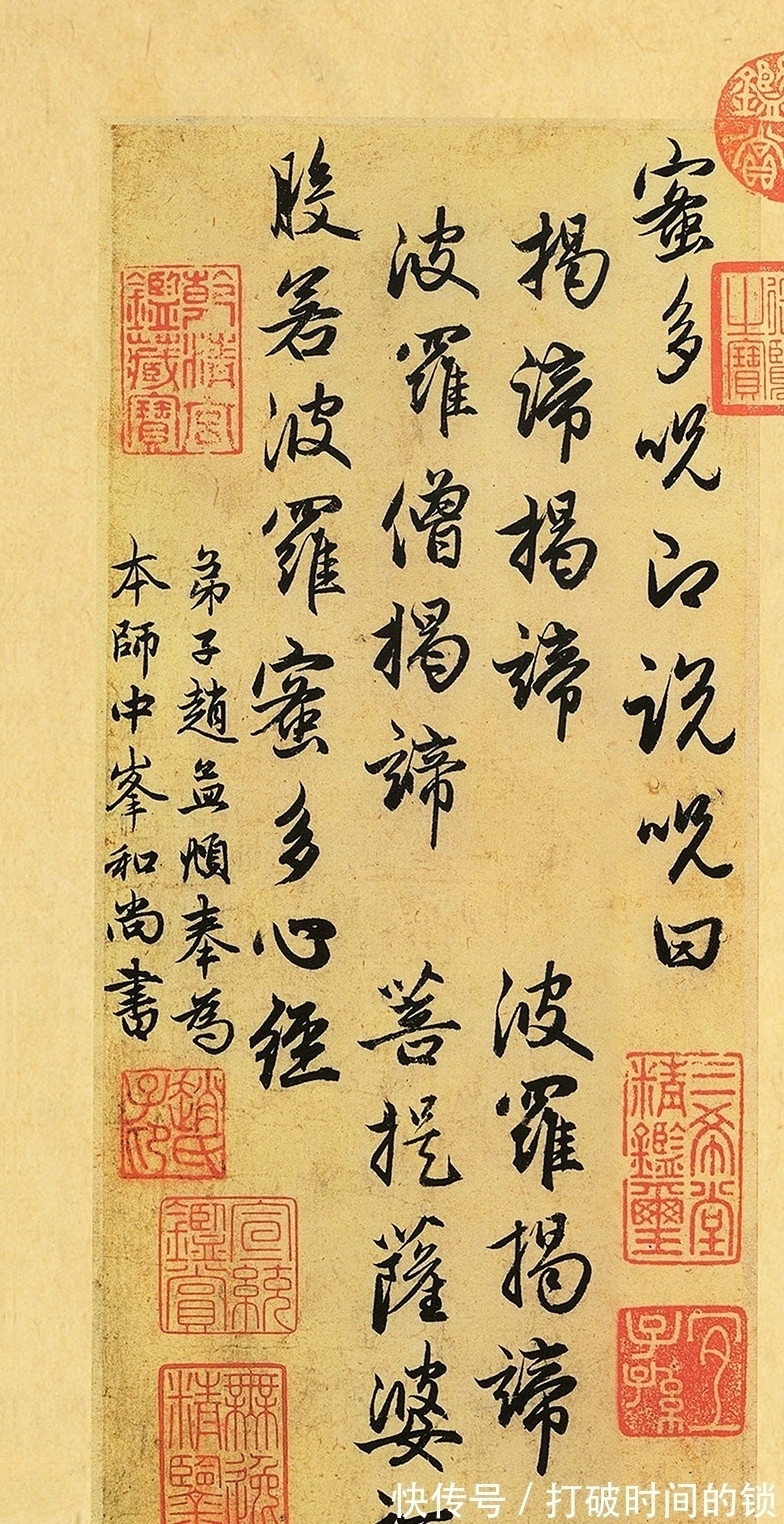 蜜多呪即说呪曰
揭諦揭諦 波羅揭諦
波羅僧揭諦 菩提薩婆
般若波羅蜜多心經
弟子趙孟頫奉為
本師中峯和尚書
乾清宮鑑藏寶
趙氏子印
宣統鑑賞
無逸精鑒
三希堂精鑑璽
宜子孫
鑑賞
之寶
快传号 / 打破时间的锁